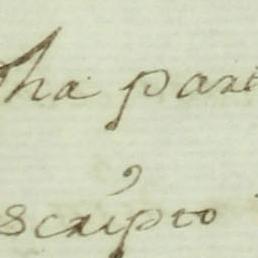 ha pare
scripto